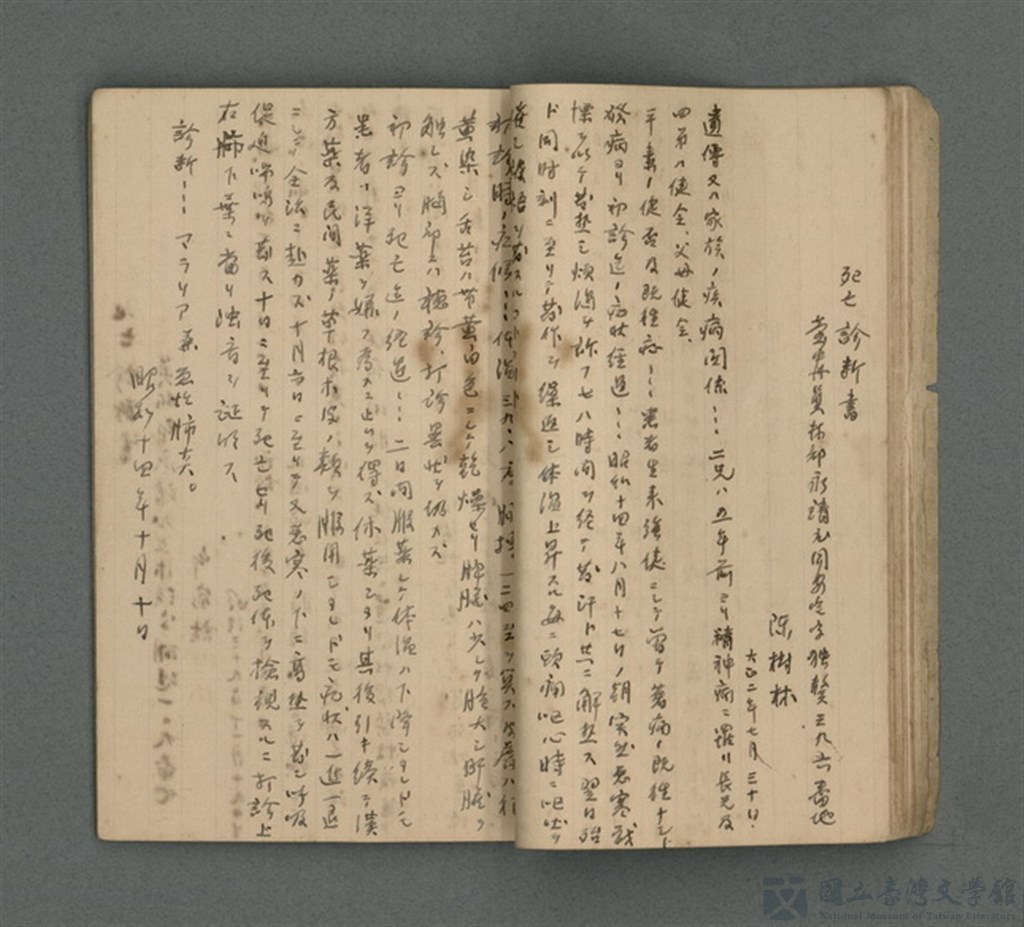 死亡診断書
台南州員林郡永靖庄同安宅字独鰲三九六番地
陳樹林
大正二年七月三十日
遺傳又ハ家族ノ疾病関係… 二兄ハ五年前ヨリ精神病ニ羅リ長兄及
四弟ハ健全、父母健全、
平素ノ健否及既往症… 患者生来強健ニシテ曽テ著病ノ既往ナシ
発病ヨリ初診迄ノ病状経過… 昭和十四年八月十七日ノ朝突然悪寒戦
慄ヲ以テ発熱シ煩渇ヲ訴フ七八時間ヲ経テ発汗ト共ニ解熱ス翌日殆
ド同時刻ニ至リテ発作ヲ繰返シ体温上昇スル毎ニ頭痛吧心時ニ吧吐ヲ
初診時ノ症候… 体温三九・八度 脈搏一二四至ヲ算ス皮膚ハ
黄染シ舌苔ハ帯黄白色ニシテ乾燥セリ脾臓ハ少シク腫大シ肝臓ヲ
触レズ胸部ハ聴診、打診異状ヲ認メズ
初診ヨリ死亡迄ノ経過… 二日間服薬シテ体温ハ下降シタレドモ
患者ハ洋薬ヲ嫌フ為メ止ムヲ得ズ休薬シタリ其後引キ続キ漢
方薬及民間薬ノ草根木皮ノ類ヲ服用シタレドモ病状ハ一進一退
ニシテ全治ニ赴カズ十月六日ニ至リテ又悪寒ノ下ニ高熱ヲ発シ呼吸
促迫喘鳴ヲ発ス十日ニ至リテ死亡セリ死後死体ヲ検視スルニ打診上
右肺下葉ニ当リ濁音ヲ証明ス
診断… マラリア兼急性肺炎。
昭和十四年十月十日
國立臺灣文學館
National Museum of Taiwan Literature